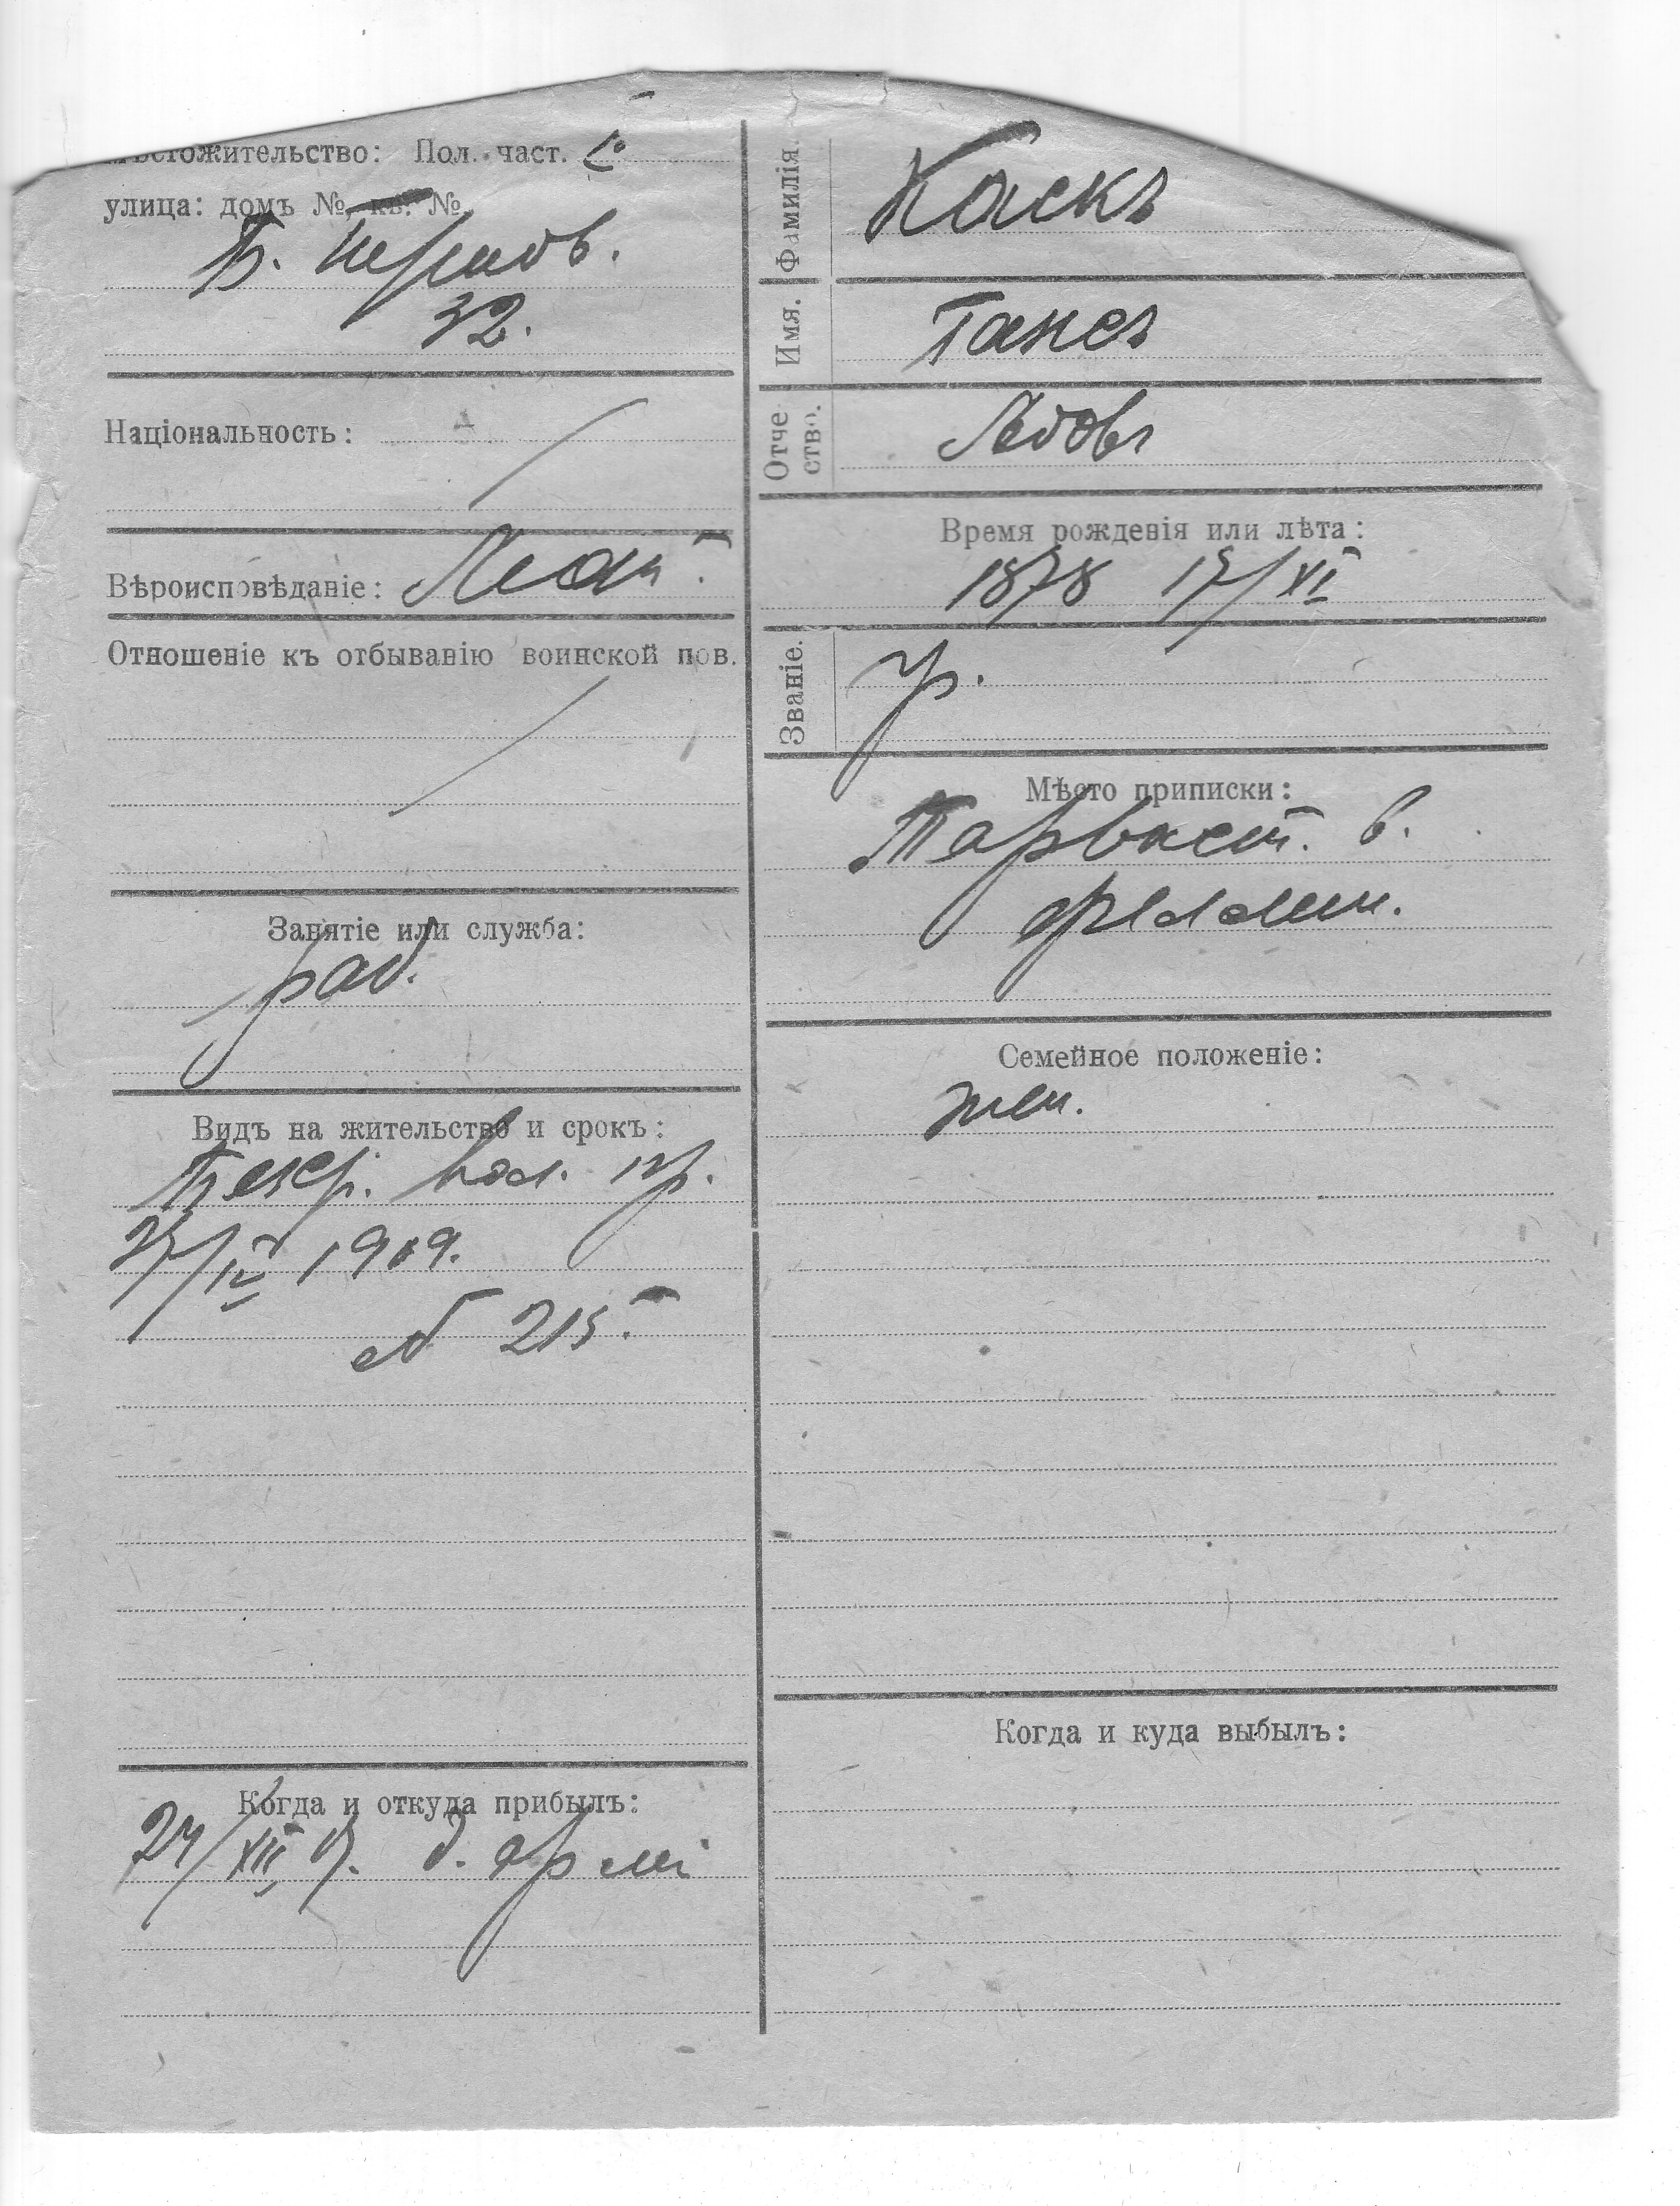 Мѣстожительство: Пол. част.
улица: домъ №, кв. №.
Б. Перновс.
32.
Національность:
Вѣроисповѣданіе: Лют.
Отношеніе къ отбыванію воинской пов.
Занятіе или служба:
раб.
Видъ на жительство и срокъ:
Безср. вол. пр.
IV 1909.
№ 215.
Когда и откуда прибылъ:
24/XII 17. д. арміи
Фамилія. Каскъ
Имя. Гансъ
Отчество. Ядовъ
Время рожденія или лѣта:
1878 17/XI
Званіе. гр.
Мѣсто приписки:
Тарваст. в.
Феллин.
Семейное положеніе:
жен.
Когда и куда выбылъ: